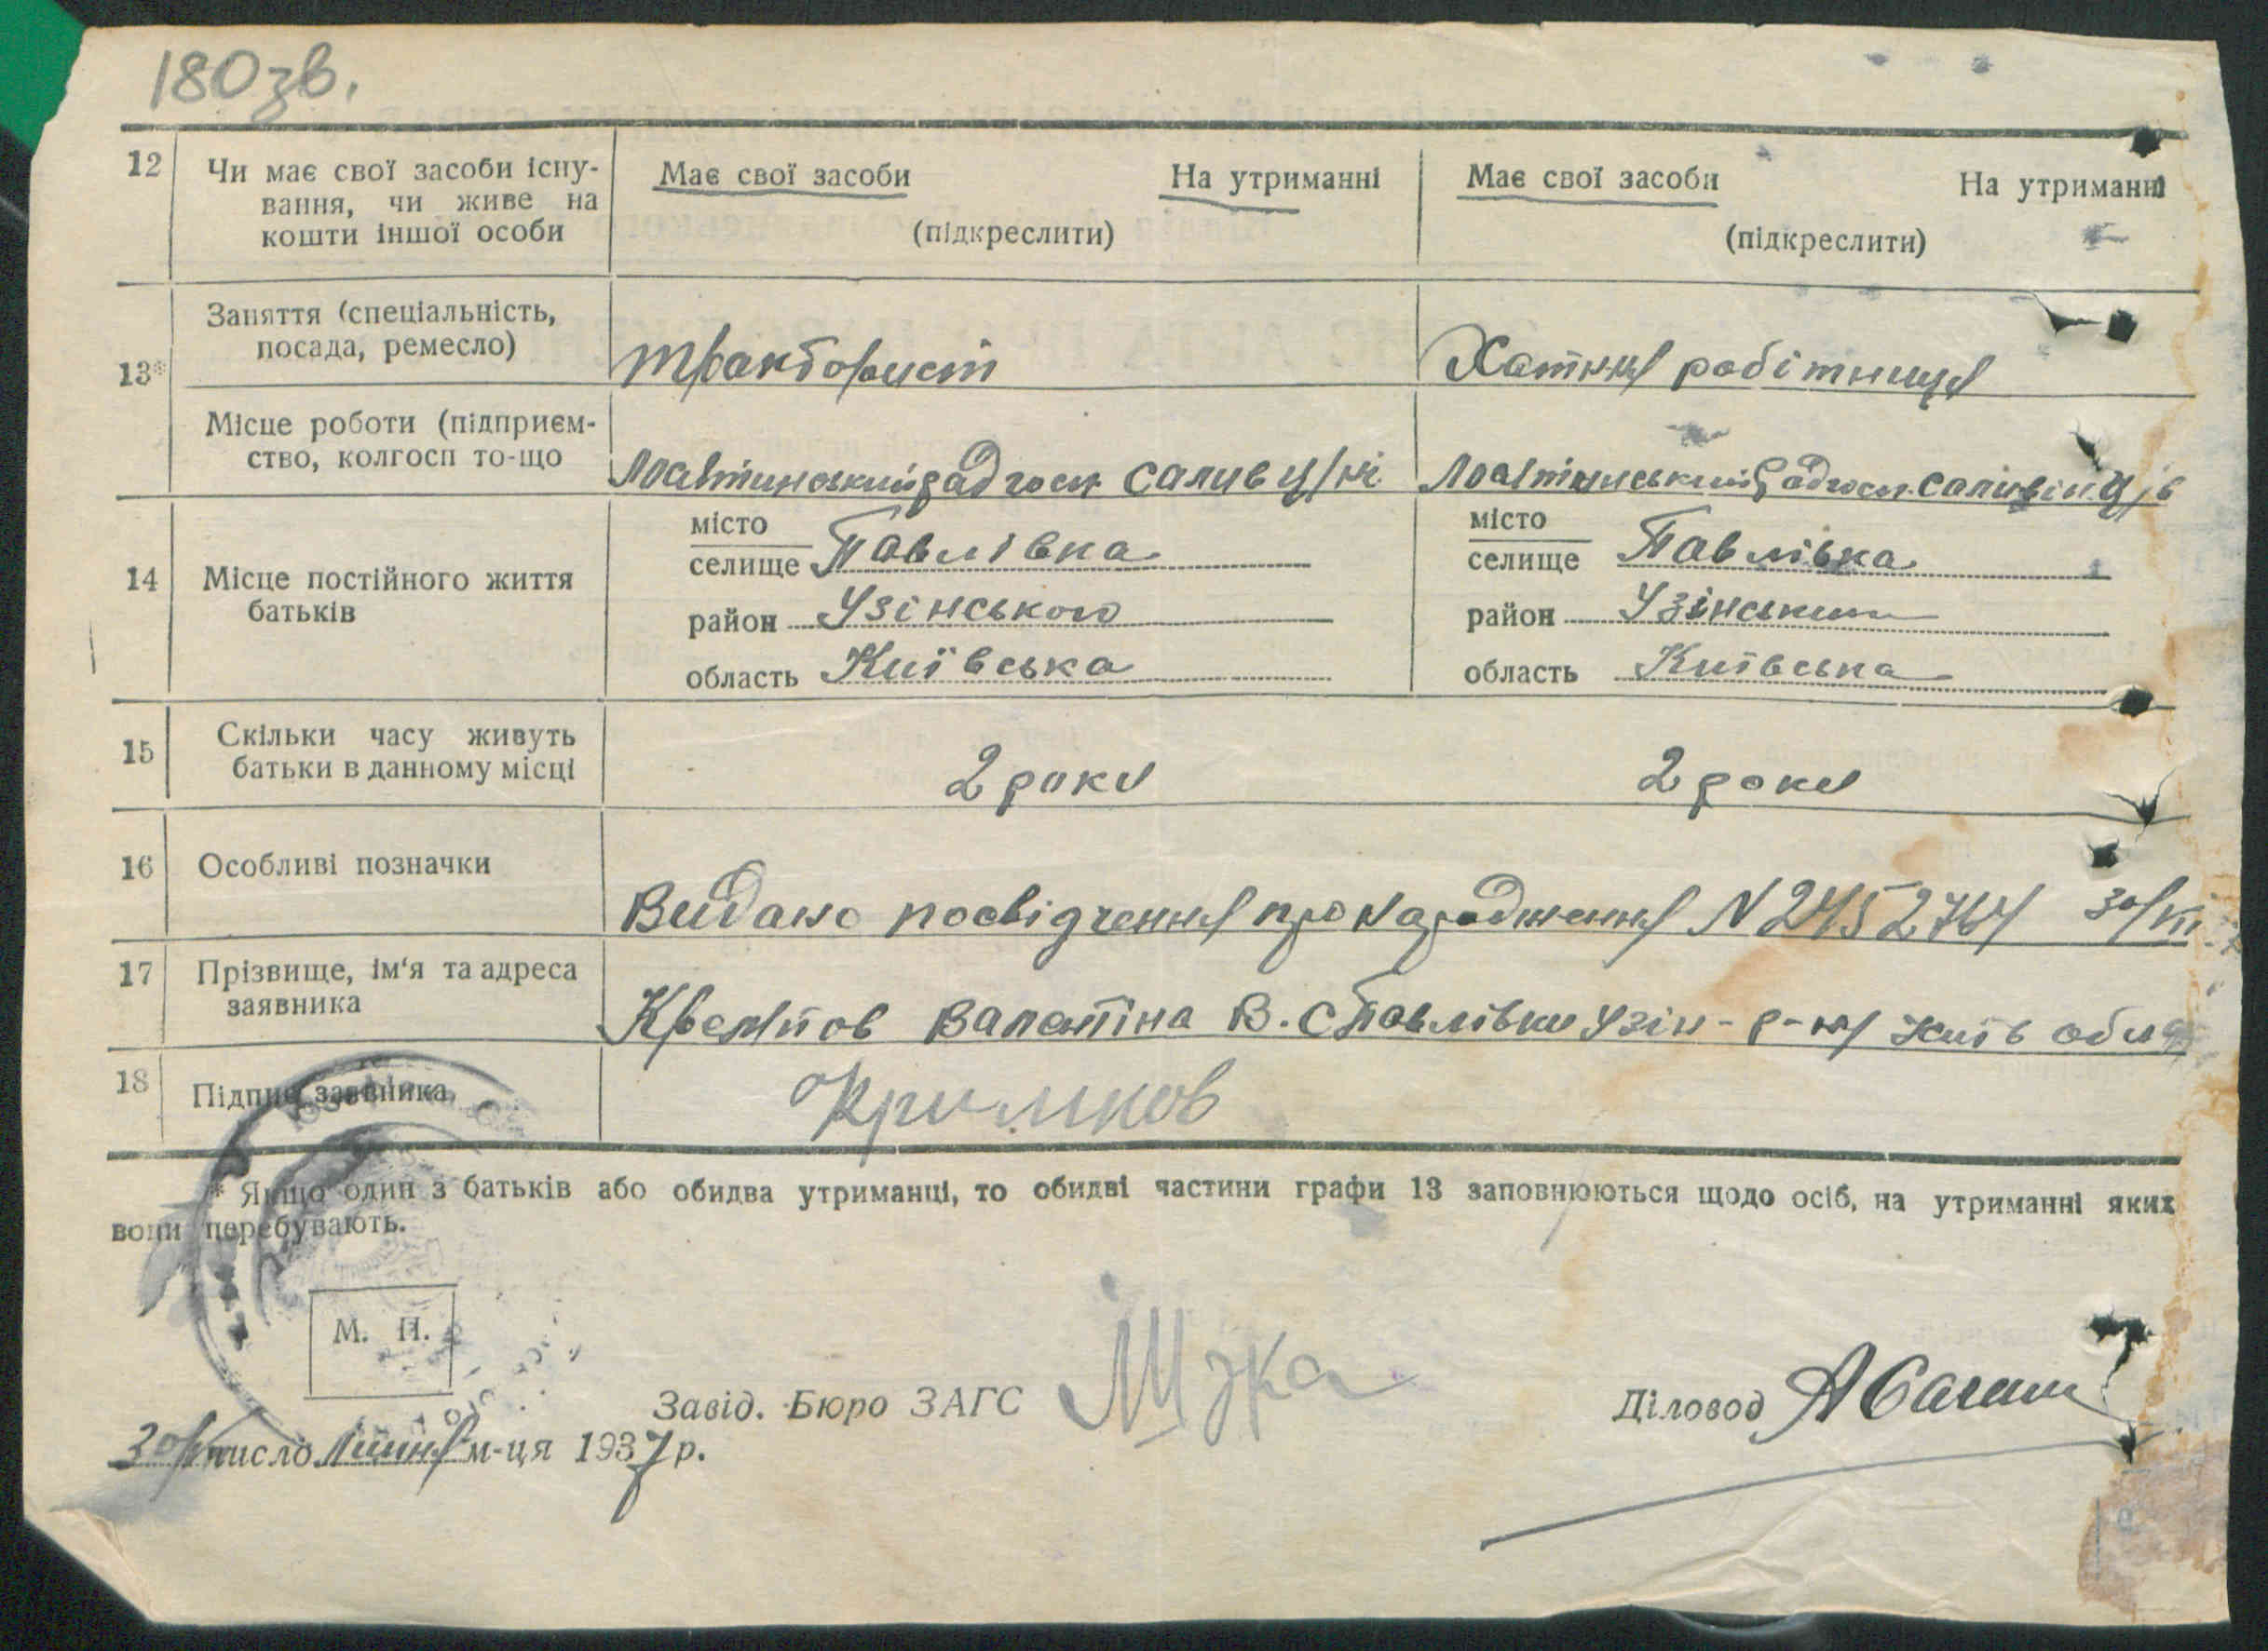 180зв.
12 Чи має свої засоби існу-
вання, чи живе на
кошти іншої особи
Має свої засоби На утриманні
(підкреслити)
Має свої засоби На утриманні
(підкреслити)
13*
Заняття (спеціальність,
посада, ремесло)
тракторист
Хатня робітниця
Місце роботи (підприєм-
ство, колгосп то-що
радгосп
радгосп
14 Місце постійного життя
батьків
місто
селище Павлівка
район Узінського
область Київська
місто
селище Павлівка
район Узінський
область Київська
15 Скільки часу живуть
батьки в данному місці
2 роки 2 роки
16 Особливі позначки
Видано посвідчення про народження N
17 Прізвище, ім'я та адреса
заявника
Валентіна В. с Павлівки Узін-р-ну Київ обл
18 Підпис заявника
* Якщо один з батьків або обидва утриманці, то обидві частини графи 13 заповнюються щодо осіб, на утриманні яких
вони перебувають.
М. П.
Завід. Бюро ЗАГС
Діловод
30/ число м-ця 1937 р.